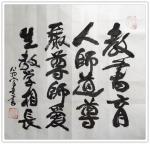 教書育
人師道尊
嚴尊師愛
生教學相長